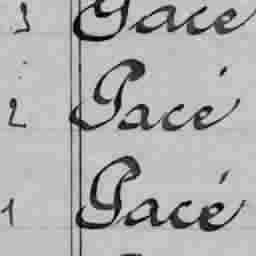 3 Pacé
2 Pacé
1 Pacé